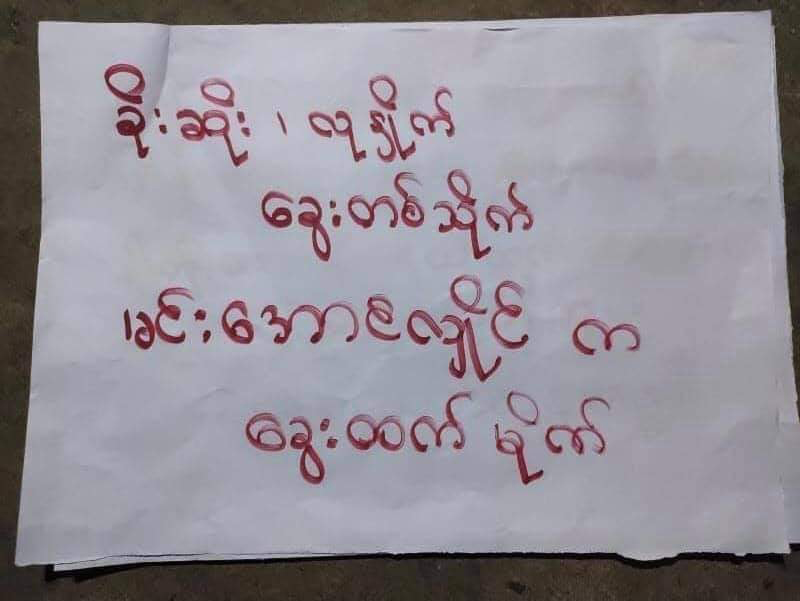 ခိုးဆိုး ၊ လုရှိုက်
ခွေးတစ်သိုက်
မင်းအောင်လှိုင် က
ခွေးထက် မိုက်